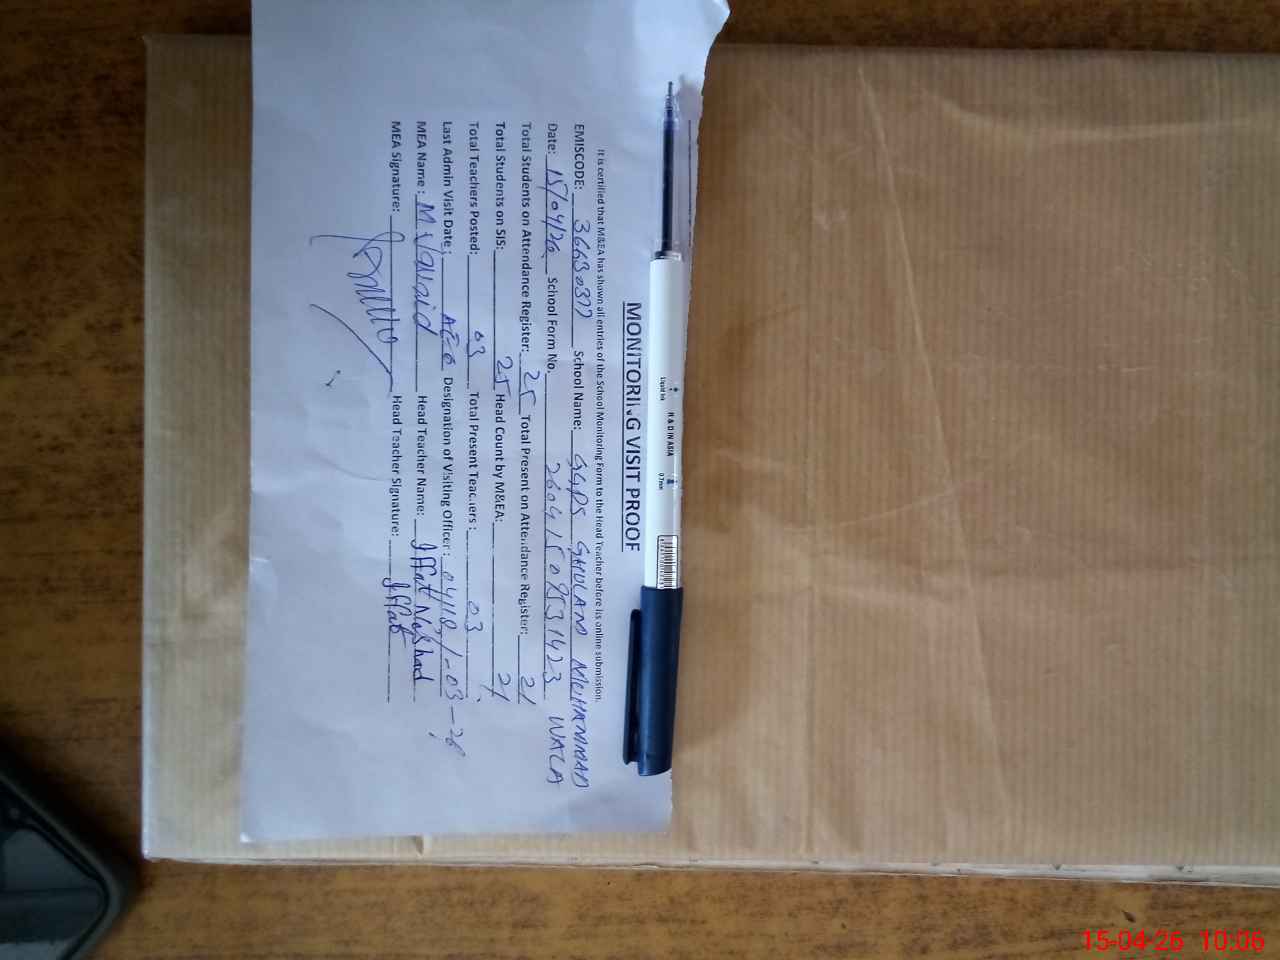 MONITORING VISIT PROOF
It is certified that M&EA has shown all entries of the School Monitoring Form to the Head Teacher before its online submission.
EMISCODE: 36630377 School Name: GGPS GHULAM MUHAMMAD WALA
Date: 15/04/26 School Form No. 26041509531423
Total Students on Attendance Register: 25 Total Present on Attendance Register: 21
Total Students on SIS: 25 Head Count by M&EA: 21
Total Teachers Posted: 03 Total Present Teachers: 03
Last Admin Visit Date: AEO Designation of Visiting Officer:
MEA Name: M Junaid Head Teacher Name: Iffat Nashad
MEA Signature: Head Teacher Signature: Iffat
Liquid Ink
R & D IN ASIA
0.7mm
15-04-26 10:06